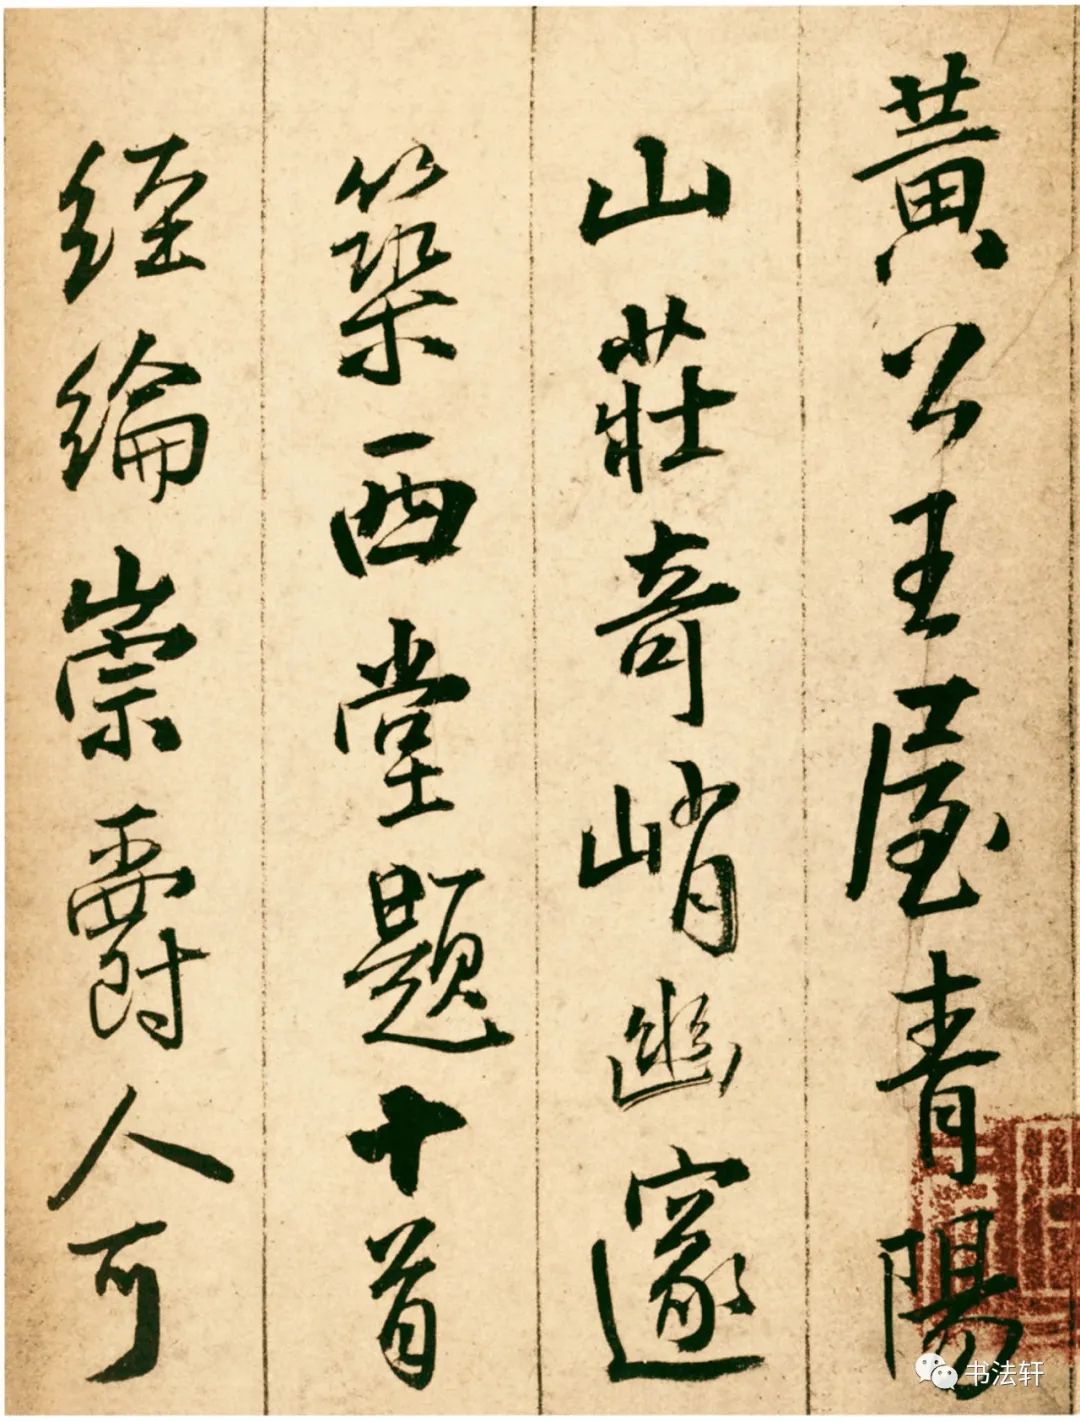 黃公王屋青陽
山莊奇峭幽邃
築西堂題十首
經綸崇爵人可
书法轩